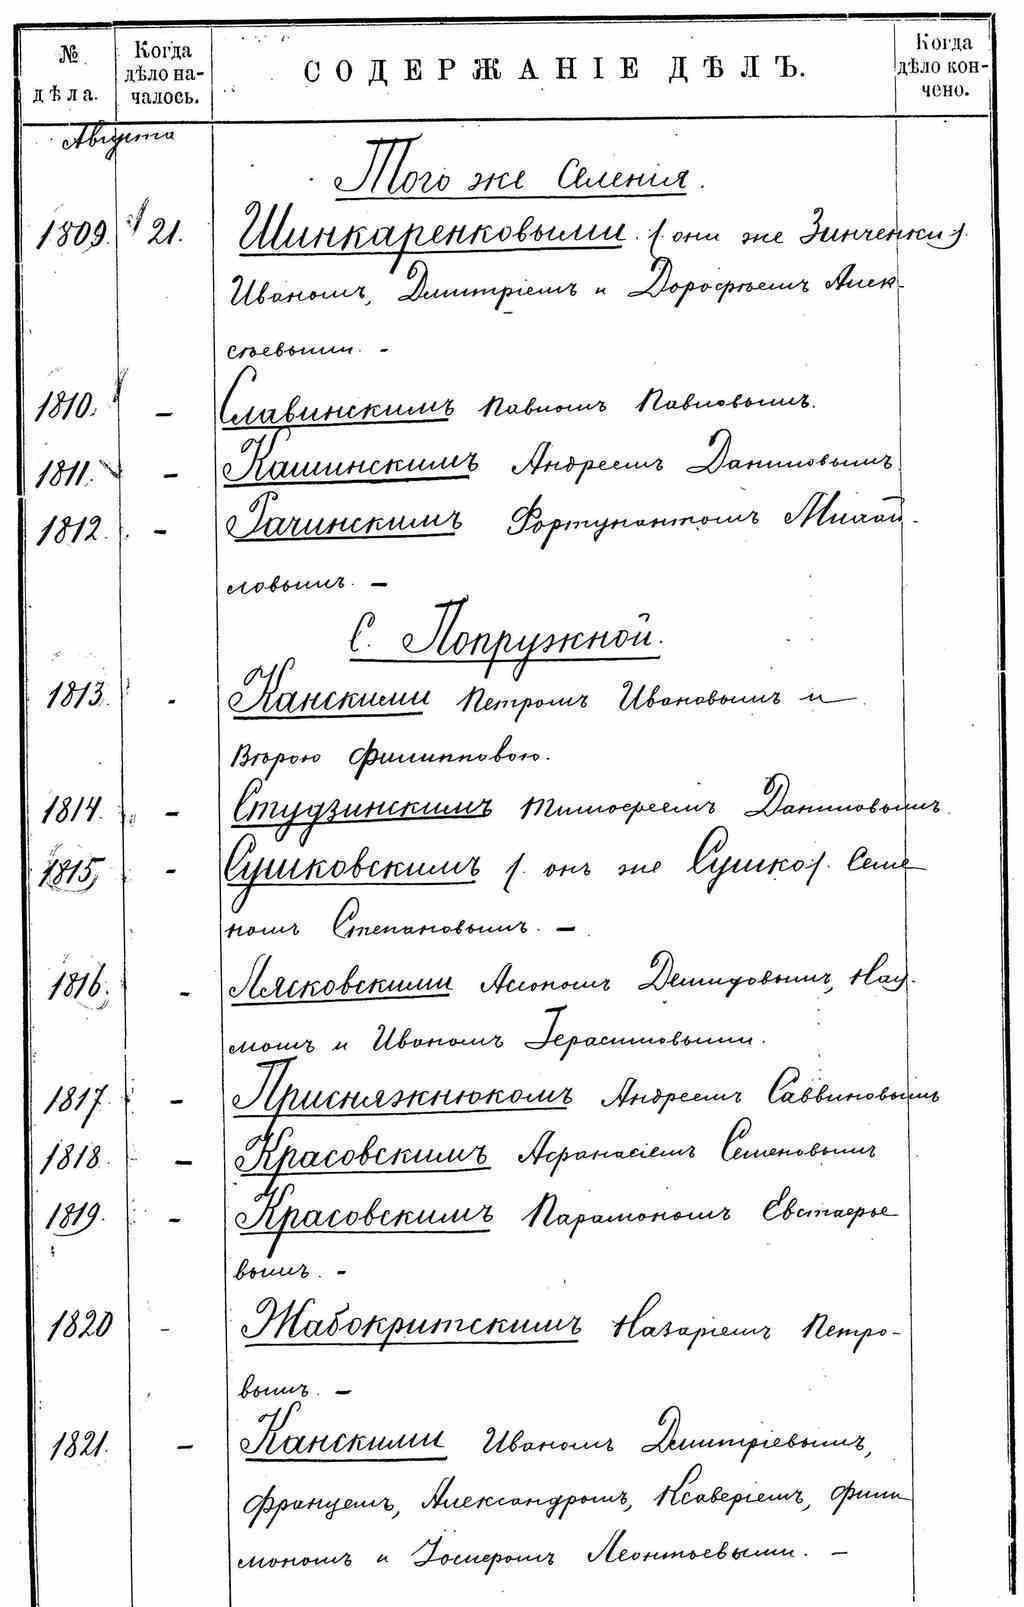 № дѣла.
Когда дѣло на-
чалось.
СОДЕРЖАНІЕ ДѢЛЪ.
Когда дѣло кон-
чено.
Августа
Того же Селенія.
1809. 21. Шинкаренковыми (они же Зинченки).
Иваномъ, Дмитріемъ и Дорофѣемъ Алек-
сѣевыми. -
1810. - Славинскимъ Павломъ Павловымъ.
1811. - Кашинскимъ Андреемъ Даниловымъ
1812. - Рачинскимъ Фортунантомъ Михай-
ловымъ. -
С. Попружной.
1813. - Канскими Петромъ Ивановымъ и
Второю Филипповою.
1814. - Студзинскимъ Тимофеемъ Даниловымъ.
1815, - Сушковскимъ (онъ же Сушко). Семе
номъ Степановымъ. -
1816. - Лясковскими Агономъ Демидовымъ, Нау-
момъ и Иваномъ Герасимовыми.
1817. - Присняжнюкомъ Андреемъ Саввиновымъ
1818. - Красовскимъ Афанасіемъ Семеновымъ
1819. - Красовскимъ Парамономъ Евстафье
вымъ. -
1820 - Жабокритскимъ Назаріемъ Петро-
вымъ. -
1821. - Канскими Иваномъ Дмитріевымъ,
Францемъ, Александромъ, Ксаверіемъ, Фили
мономъ и Іосиферомъ Леонтьевыми. -